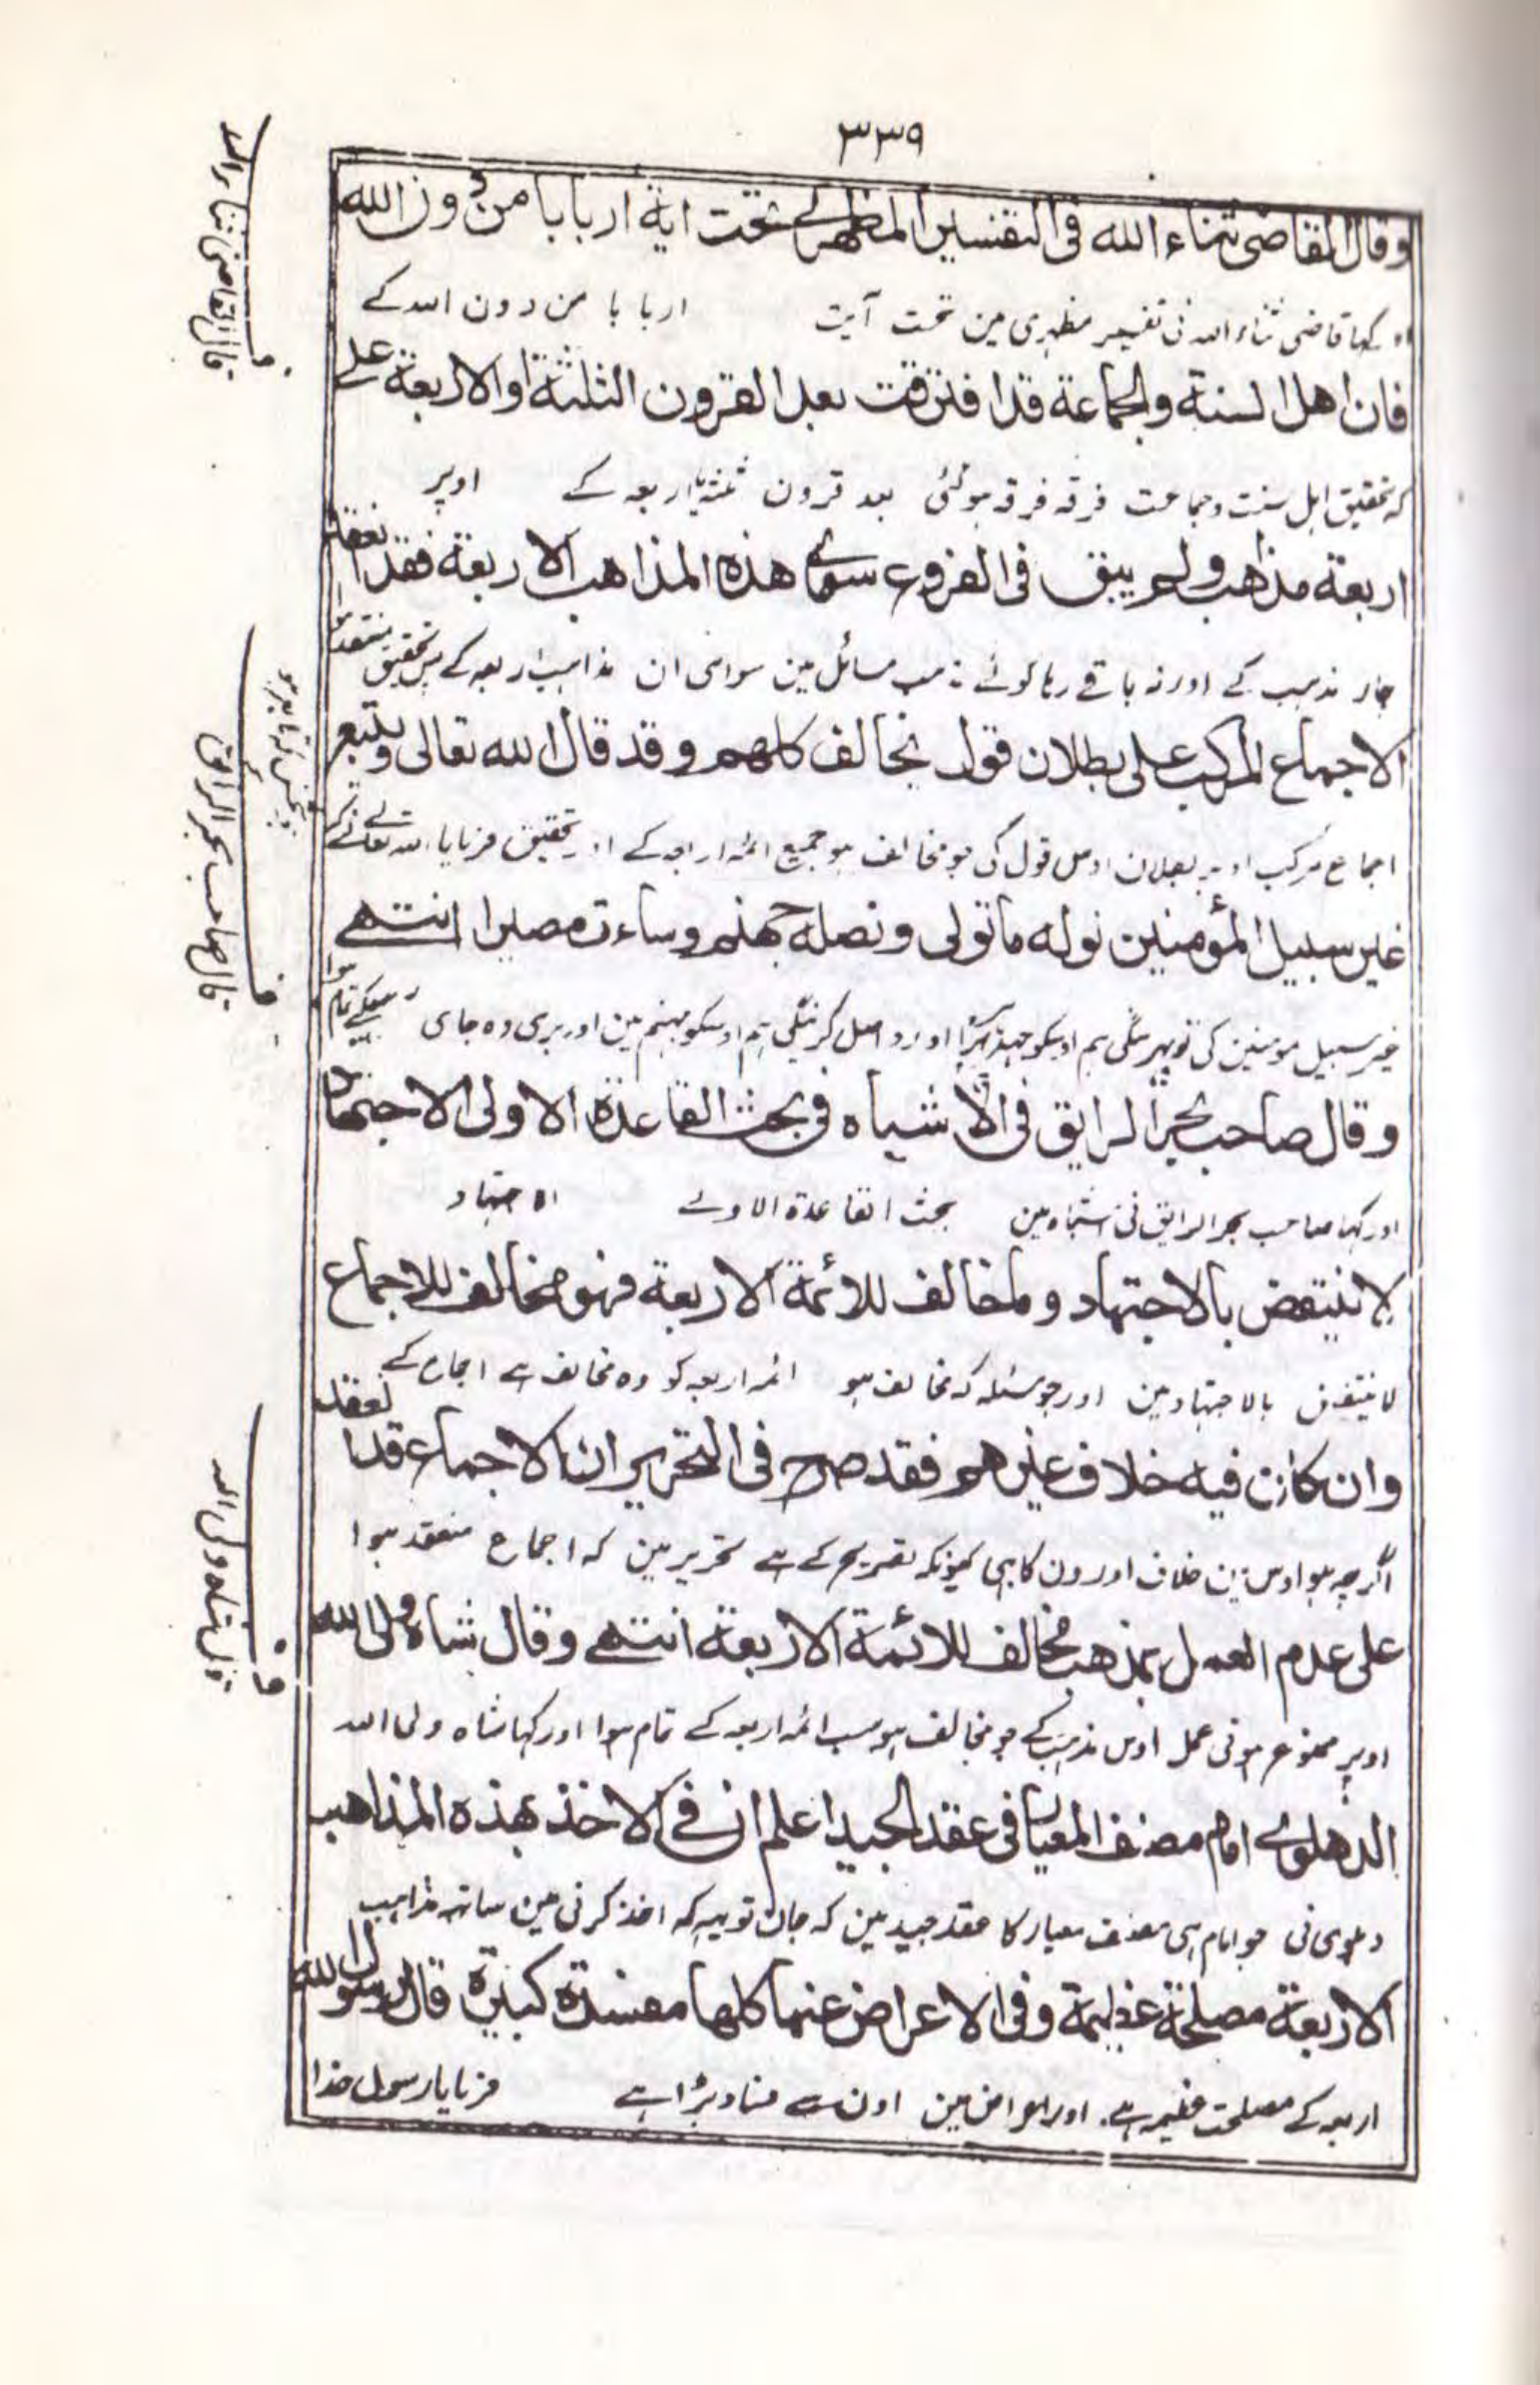 ٣٣٩
وقال القاضى ثناء الله فى التفسير المظهرى تحت اية اربابا من دون الله
اور کہا قاضی ثناء اللہ نی تفسیر مظہری مین تحت آیت اربا با من دون اللہ کے
فان اهل السنة والجماعة قد افترقت بعد القرون الثلثة او الاربعة على
کہ تحقیق اہل سنت وجماعت فرقہ فرقہ ہوگئی بعد قرون ثلثہ یا اربعہ کے اوپر
اربعة مذاهب ولم يبق فى الفروع سوى هذه المذاهب الاربعة فقد انعقد
چار مذہب کے اور نہ باقے رہا کوئے مذہب مسائل مین سوای ان مذاہب اربعہ کے پس تحقیق منعقد ہوا
الاجماع المركب على بطلان قول يخالف كلهم وقد قال الله تعالى ويتبع
اجماع مرکب اوپر بطلان اوس قول کی جو مخالف ہو جمیع ائمہ اربعہ کے اور تحقیق فرمایا اللہ تعالے نے کہ
غير سبيل المؤمنين نوله ما تولى ونصله جهنم وساءت مصيرا انتهے
غیر سبیل مومنین کی تو پہیرینگی ہم اوسکو جدہر پہرا اور داخل کرینگی ہم اوسکو جہنم مین اور بری وہ جای تمام ہوا
وقال صاحب بحر الرايق فى الأشباه فى بحث القاعدة الاولى الاجتهاد
اور کہا صاحب بحر الرایق نی اشباہ مین بحث القاعدة الاولے الاجتہاد
لا ينتقض بالاجتهاد وما خالف للائمة الاربعة فهو مخالف للاجماع
لا ینتقض بالاجتہاد مین اور جو مسئلہ کہ مخالف ہو ائمہ اربعہ کو وہ مخالف ہے اجماع کے
وان كان فيه خلاف غيرهم فقد صرح فى التحرير ان الاجماع قد انعقد
اگرچہ ہو اوس مین خلاف اورون کا بہی کیونکہ تصریح کے ہے تحریر مین کہ اجماع منعقد ہوا
على عدم العمل بمذهب مخالف للائمة الاربعة انتهے وقال شاه ولى الله
اوپر ممنوع ہونی عمل اوس مذہب کے جو مخالف ہو سب ائمہ اربعہ کے تمام ہوا اور کہا شاہ ولی اللہ
الدهلوے امام مصنف المعيار فى عقد الجيد اعلم ان فى الاخذ بهذه المذاهب
دہلوی نی جو امام ہی مصنف معیار کا عقد جید مین کہ جان تو یہہ کہ اخذ کرنی مین ساتہ مذاہب
الاربعة مصلحة عظيمة وفى الاعراض عنها كلها مفسدة كبيرة قال رسول الله
اربعہ کے مصلحت عظیمہ ہے اور اعراض مین اون سے فساد بڑا ہے فرمایا رسول خدا
قال القاضى ثناء الله
قال صاحب بحر الرائق
قال شاه ولى الله